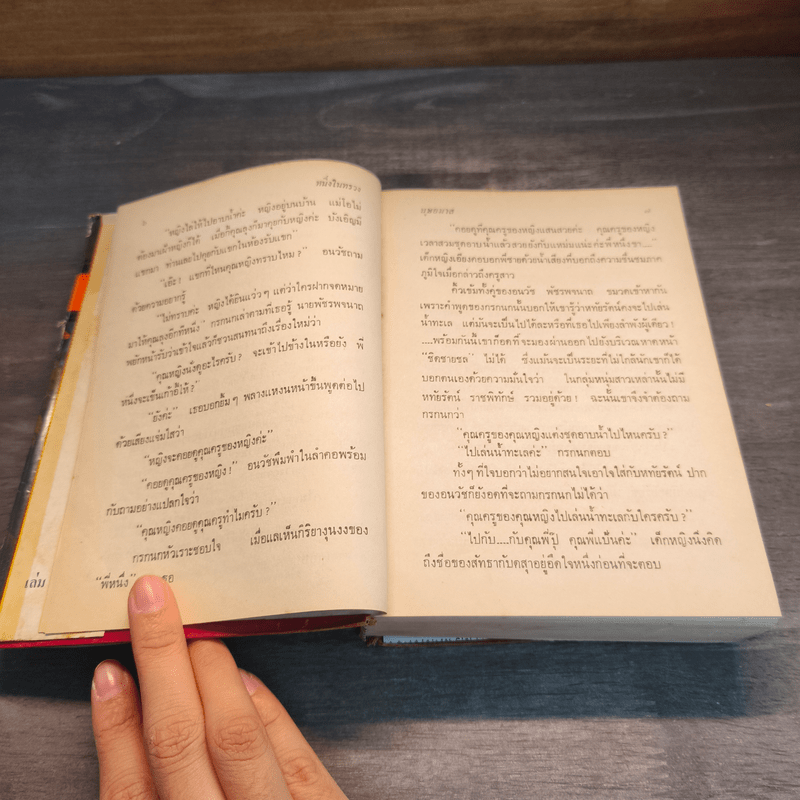 ๖
หนึ่งในทรวง
“หญิงใดให้ไปอาบน้ำค่ะ หญิงอยู่บนบ้าน แม่โอไม่
ต้องมาเฝ้าหญิงก็ได้ เมื่อกี้คุณลุงก็มาคุยกับหญิงค่ะ บังเอิญมี
แขกมา ท่านเลยไปคุยกับแขกในห้องรับแขก”
“เอ๊ะ! แขกที่ไหนคุณหญิงทราบไหม?” อนวัชถาม
ด้วยความอยากรู้
“ไม่ทราบค่ะ หญิงได้ยินแว่วๆ แต่ว่าใครฝากจดหมาย
มาให้คุณลุงอีกทีหนึ่ง” กรกนกเล่าตามที่เธอรู้ นายพัชรพจนาถ
พยักหน้ารับว่าเข้าใจแล้วก็ชวนสนทนาถึงเรื่องใหม่ว่า
“คุณหญิงนั่งดูอะไรครับ? จะเข้าไปข้างในหรือยัง พี่
หนึ่งจะเข็นเก้าอี้ให้?”
“ยังค่ะ” เธอบอกยิ้มๆ พลางแหงนหน้าขึ้นพูดต่อไป
ด้วยเสียงแจ่มใสว่า
“หญิงจะคอยดูคุณครูของหญิงค่ะ”
“คอยดูคุณครูของหญิง!” อนวัชพึมพำในลำคอพร้อม
กับถามอย่างแปลกใจว่า
“คุณหญิงคอยดูคุณครูทำไมครับ?”
กรกนกหัวเราะชอบใจ เมื่อแลเห็นกิริยางุนงงของ
“พี่หนึ่ง” เธอ
เล่ม
บุษยมาส
๗
“คอยดูที่คุณครูของหญิงแสนสวยค่ะ คุณครูของหญิง
เวลาสวมชุดอาบน้ำแล้วสวยยังกับแหม่มแน่ะค่ะพี่หนึ่งขา....”
เด็กหญิงเอียงคอบอกพี่ชายด้วยน้ำเสียงที่บอกถึงความชื่นชมภาค
ภูมิใจเมื่อกล่าวถึงครูสาว
คิ้วเข้มทั้งคู่ของอนวัช พัชรพจนาถ ขมวดเข้าหากัน
เพราะคำพูดของกรกนกนั้นบอกให้เขารู้ว่าหทัยรัตน์คงจะไปเล่น
น้ำทะเล แต่มันจะเป็นไปได้ละหรือที่เธอไปเพียงลำพังผู้เดียว!
....พร้อมกันนี้เขาก็อดที่จะมองผ่านออกไปยังบริเวณหาดหน้า
“ชิดชายชล” ไม่ได้ ซึ่งแม้นจะเป็นระยะที่ไม่ใกล้นักเขาก็ได้
บอกตนเองด้วยความมั่นใจว่า ในกลุ่มหนุ่มสาวเหล่านั้นไม่มี
หทัยรัตน์ ราชพิทักษ์ รวมอยู่ด้วย! ฉะนั้นเขาจึงจำต้องถาม
กรกนกว่า
“คุณครูของคุณหญิงแต่งชุดอาบน้ำไปไหนครับ?”
“ไปเล่นน้ำทะเลค่ะ” กรกนกตอบ
ทั้งๆ ที่ใจบอกว่าไม่อยากสนใจเอาใจใส่กับหทัยรัตน์ ปาก
ของอนวัชก็ยังอดที่จะถามกรกนกไม่ได้ว่า
“คุณครูของคุณหญิงไปเล่นน้ำทะเลกับใครครับ?”
“ไปกับ....กับคุณพี่ปุ๋ คุณพี่แป้นค่ะ” เด็กหญิงนึ่งคิด
ถึงชื่อของสัทธากับดสุาอยู่อึดใจหนึ่งก่อนที่จะตอบ